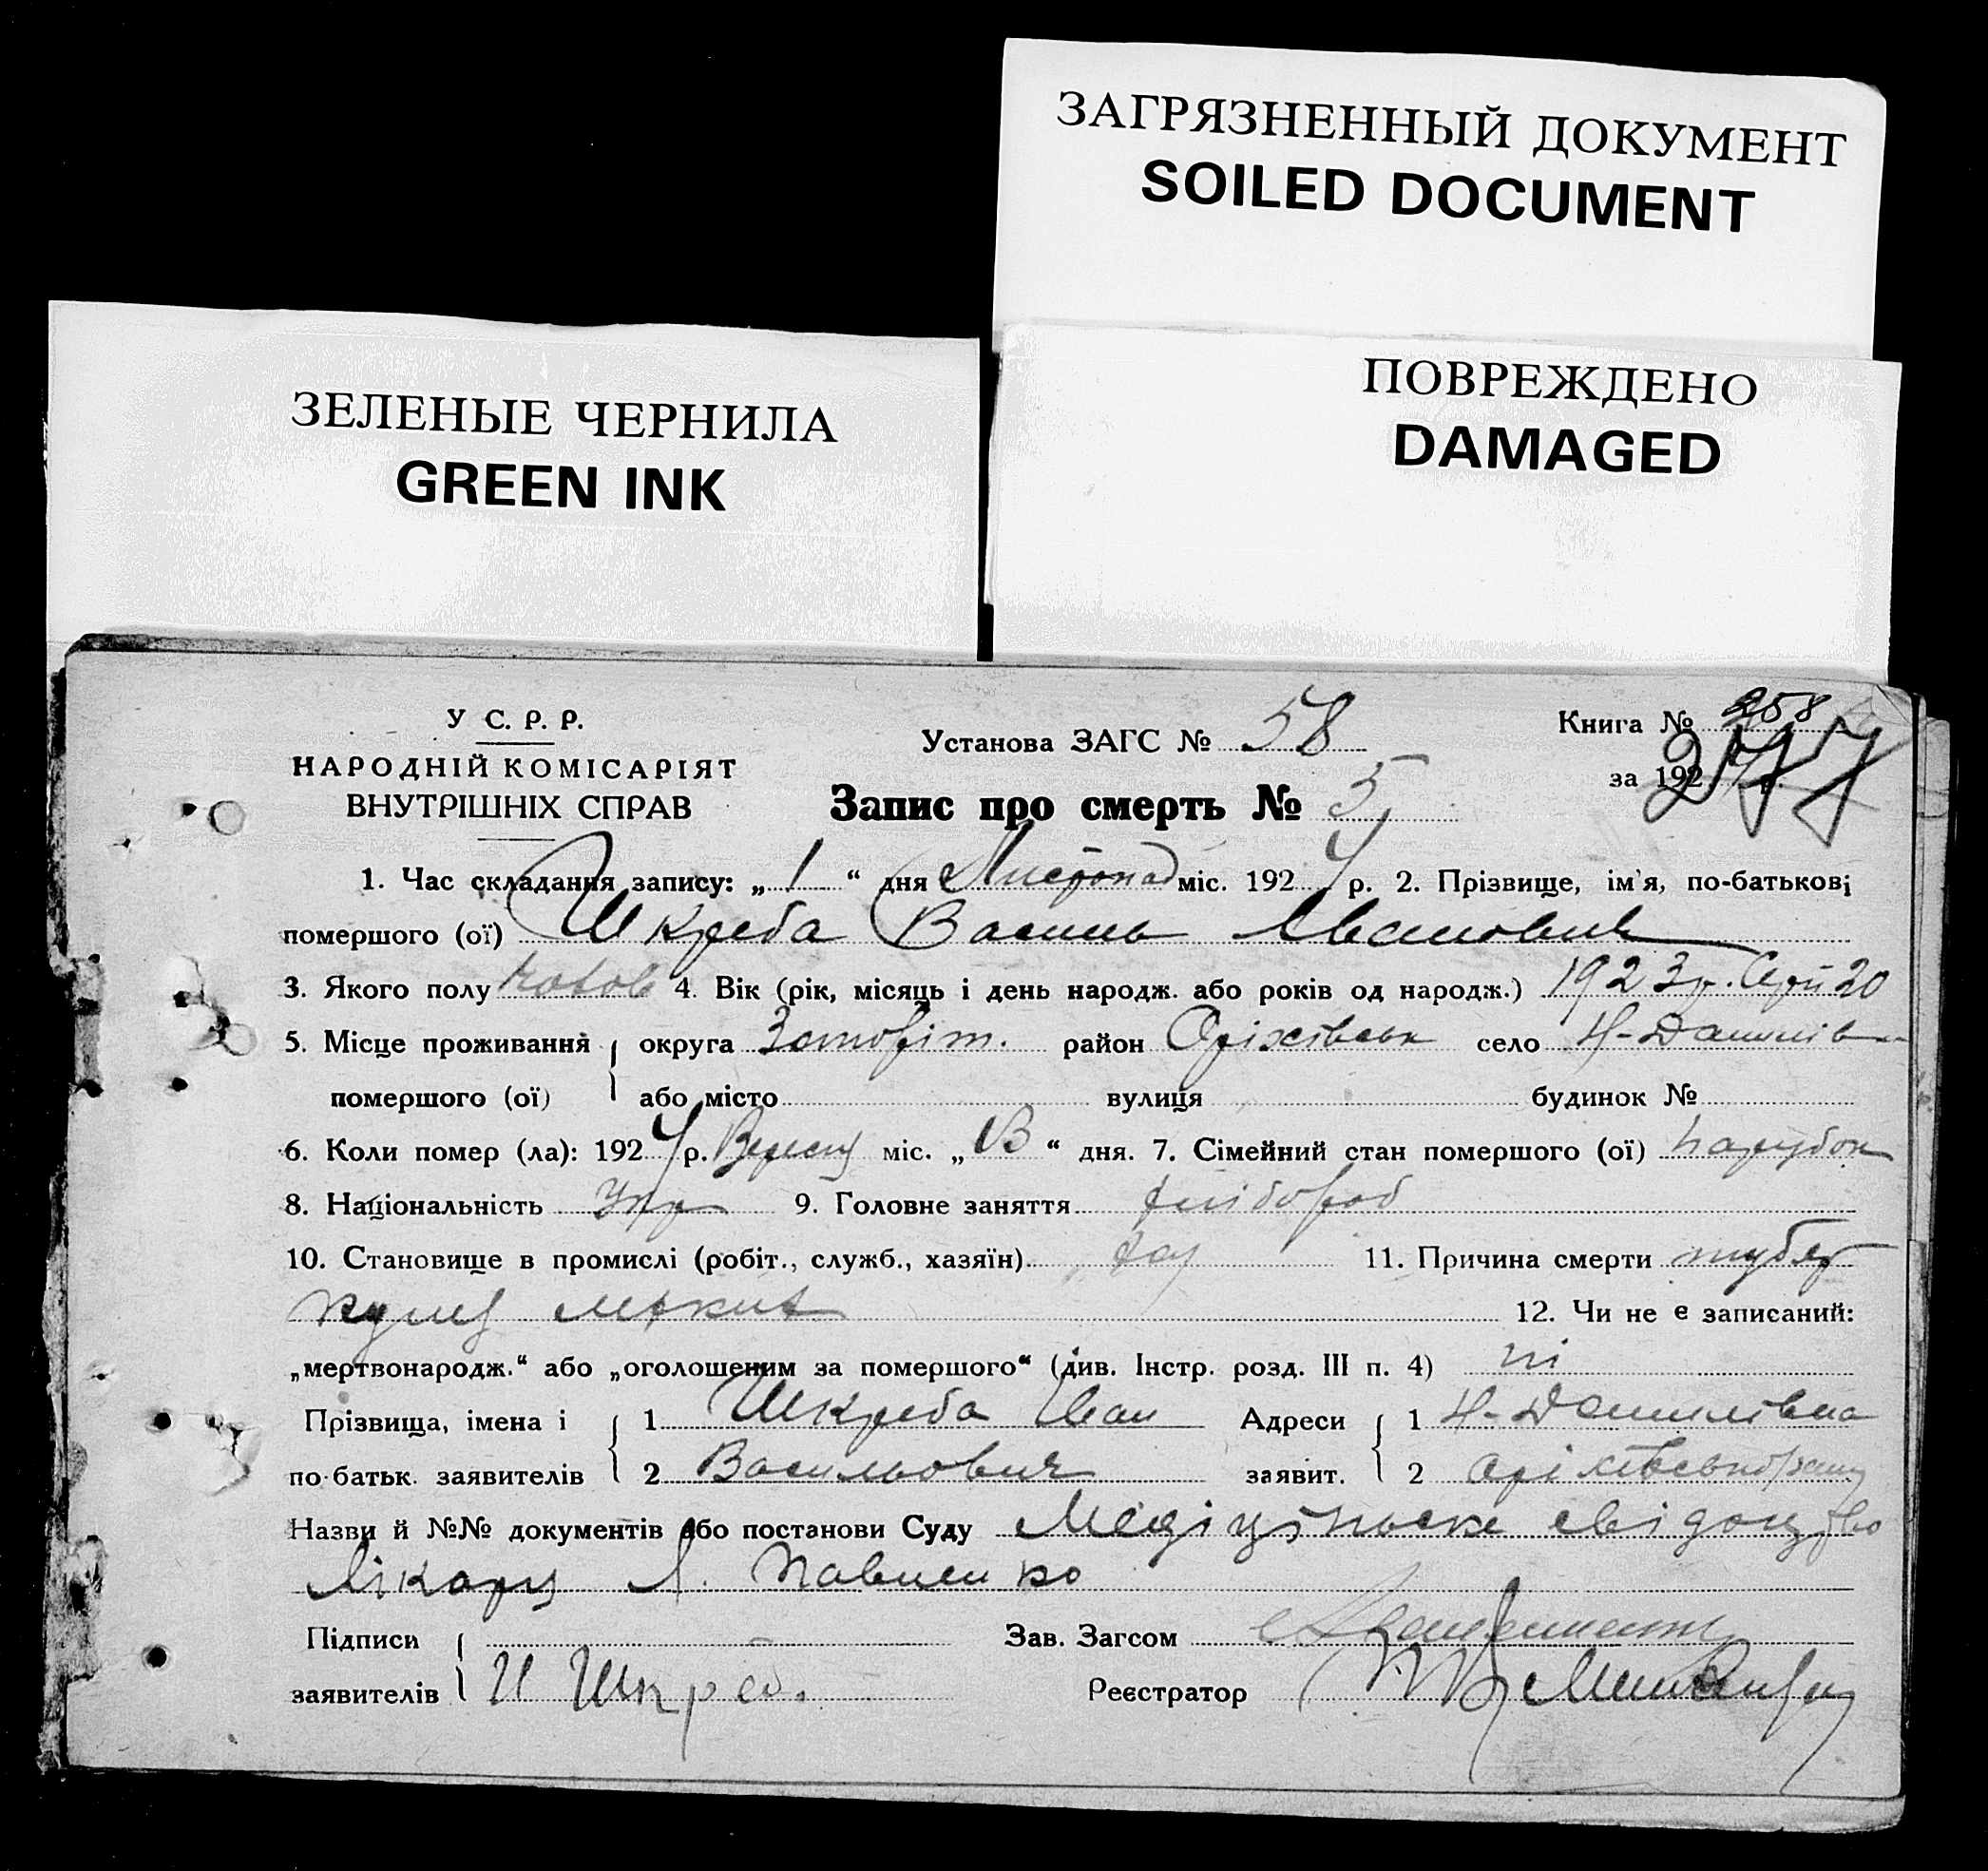 ЗАГРЯЗНЕННЫЙ ДОКУМЕНТ
SOILED DOCUMENT
ЗЕЛЕНЫЕ ЧЕРНИЛА
GREEN INK
ПОВРЕЖДЕНО
DAMAGED
У С. Р. Р.
НАРОДНІЙ КОМІСАРІЯТ
ВНУТРІШНІХ СПРАВ
Установа ЗАГС № 58
Книга № 258
за 192 р.
277
Запис про смерть № 5
1. Час складання запису: „ 1 “ дня Листопад міс. 192 4 р. 2. Прізвище, ім'я, по-батькові
помершого (ої) Шкреба Василь Іванович
3. Якого полу чолов 4. Вік (рік, місяць і день народж. або років од народж.) 1923 р. 20
5. Місце проживання округа Запоріж. район Оріхівськ село Н-Данилівк
помершого (ої) або місто вулиця будинок №
6. Коли помер (ла): 192 4 р. Вересня міс. „ “ дня. 7. Сімейний стан помершого (ої) парубок
8. Національність Укр 9. Головне заняття хлібороб
10. Становище в промислі (робіт., служб., хазяїн) хаз 11. Причина смерти тубер
кульоз 12. Чи не є записаний:
„мертвонародж.“ або „оголошеним за помершого“ (див. Інстр. розд. III п. 4) ні
Прізвища, імена і 1 Шкреба Іван Адреси 1 Н-Данилівка
по-батьк. заявителів 2 Васильович заявит. 2 Оріхівського рай
Назви й №№ документів або постанови Суду Медіцінське свідоцтво
Лікаря Л. Павленко
Підписи Зав. Загсом
заявителів И Шкреб. Реєстратор